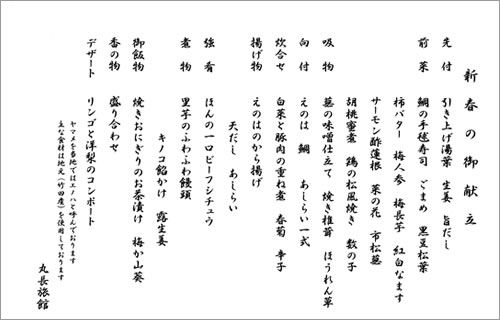 新春の御献立
先付　引き上げ湯葉　生姜　旨だし
前菜　鯛の手毬寿司　ごまめ　黒豆松葉
柿バター　梅人参　梅長芋　紅白なます
サーモン酢蓮根　菜の花　市松蒸
胡桃蜜煮　鶏の松風焼き　数の子
吸物　葱の味噌仕立て　焼き椎茸　ほうれん草
向付　えのは　鯛　あしらい一式
炊合せ　白菜と豚肉の重ね煮　春菊　辛子
揚げ物　えのはのから揚げ
天だし　あしらい
強肴　ほんの一口ビーフシチュウ
煮物　里芋のふわふわ饅頭
キノコ餡かけ　露生姜
御飯物　焼きおにぎりのお茶漬け　梅か山葵
香の物　盛り合わせ
デザート　リンゴと洋梨のコンポート
ヤマメを当地ではエノハと呼んでおります
主な食材は地元（竹田産）を使用しております
丸長旅館